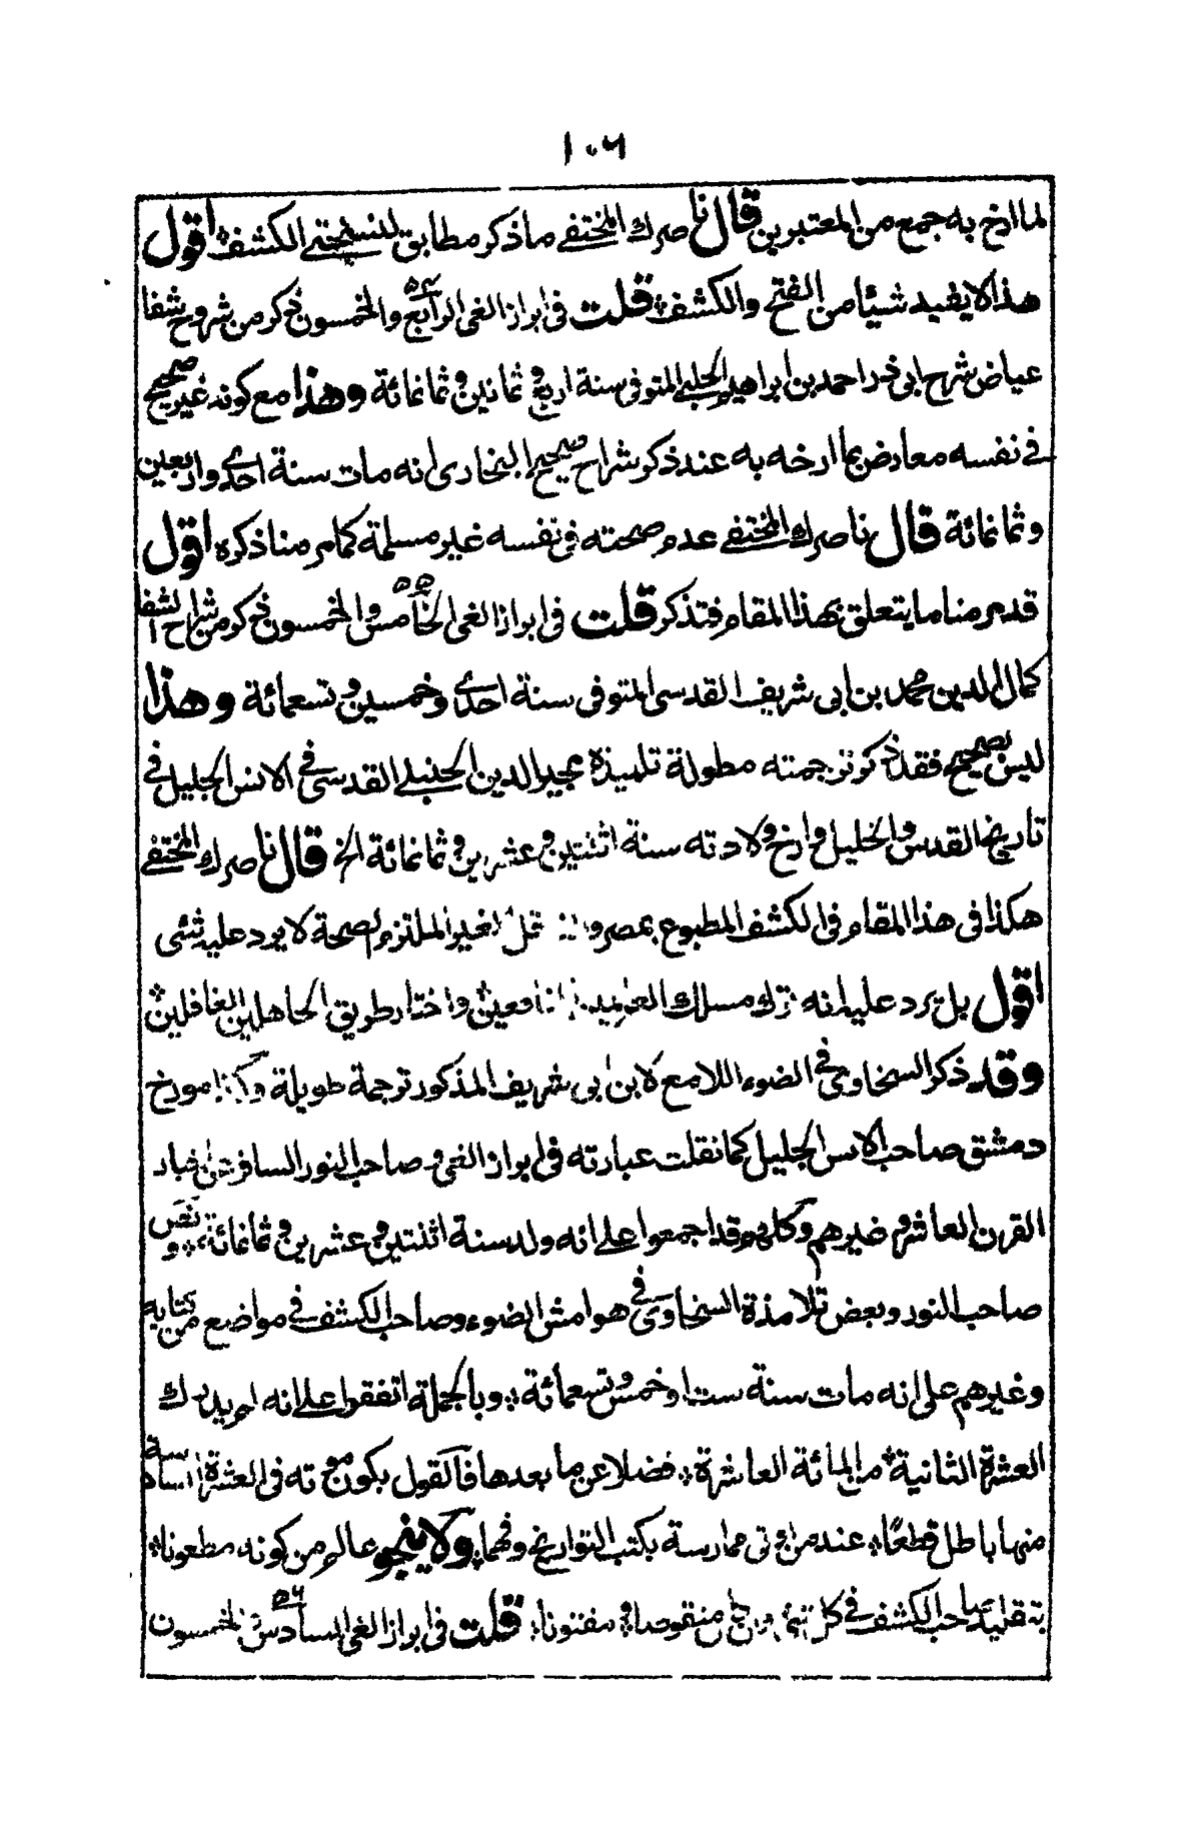 ١٠٦
لما ارخ به جمع من المعتبرين قال ناصرك المختفے ما ذكر مطابق لنسختے الكشف اقول
هذا لا يفيد شيئا من الفتح والكشف قلت فى ابراز الغى الرابع ۵۴ والخمسون ذكر من شروح شفا
عياض شرح ابى ذر احمد بن ابراهيم الحلبے المتوفى سنة اربع و ثمانين و ثمانمائة وهذا مع كونه غير صحيح
فے نفسه معارض بما ارخه به عند ذكر شراح صحيح البخارى انه مات سنة احدے واربعين
وثمانمائة قال ناصرك المختفے عدم صحته فى نفسه غير مسلمة كما مر منا ذكره اقول
قد مر منا ما يتعلق بهذا المقام فتذكر قلت فى ابراز الغى الخامس ۵۵ و الخمسون ذكر من شراح الشفا
كمال الدين محمد بن ابى شريف القدسى المتوفى سنة احدے وخمسين و تسعمائة وهذا
ليس بصحيح فقد ذكر ترجمته مطولة تلميذه مجير الدين الحنبلے القدسى فے الانس الجليل فے
تاريخ القدس و الخليل و ارخ ولادته سنة اثنتين و عشرين و ثمانمائة الخ قال ناصرك المختفے
هكذا فى هذا المقام فى الكشف المطبوع بمصر و لغير الملتزم لصحة لا يرد عليه شئى
اقول بل يرد عليه انه ترك مسلك واختار طريق الجاهلين الغافلين
وقد ذكر السخاوى فے الضوء اللامع لابن ابى شريف المذكور ترجمة طويلة وكذا مورخ
دمشق صاحب الانس الجليل كما نقلت عبارته فى ابراز الغى و صاحب النور السافر فى اخبار
القرن العاشر و غيرهم وكلهم قد اجمعوا علے انه ولد سنة اثنتين و عشرين و ثمانمائة و نص
صاحب النور و بعض تلامذة السخاوى فے هوامش الضوء و صاحب الكشف فے مواضع من كتابه
وغيرهم على انه مات سنة ست او خمس و تسعمائة و بالجملة اتفقوا علے انه لم يدرك
العشرة الثانية من المائة العاشرة فضلا عن ما بعدها فالقول بكون موته فى العشرة السادسة
منها باطل قطعًا عند من اوتى ممارسة بكتب التواريخ و فهما ولا ينجو عالم من كونه مطعونا
بتقليد صاحب الكشف فے كل منقوصا و مفتونا قلت فى ابراز الغى السادس ۵۶ و الخمسون